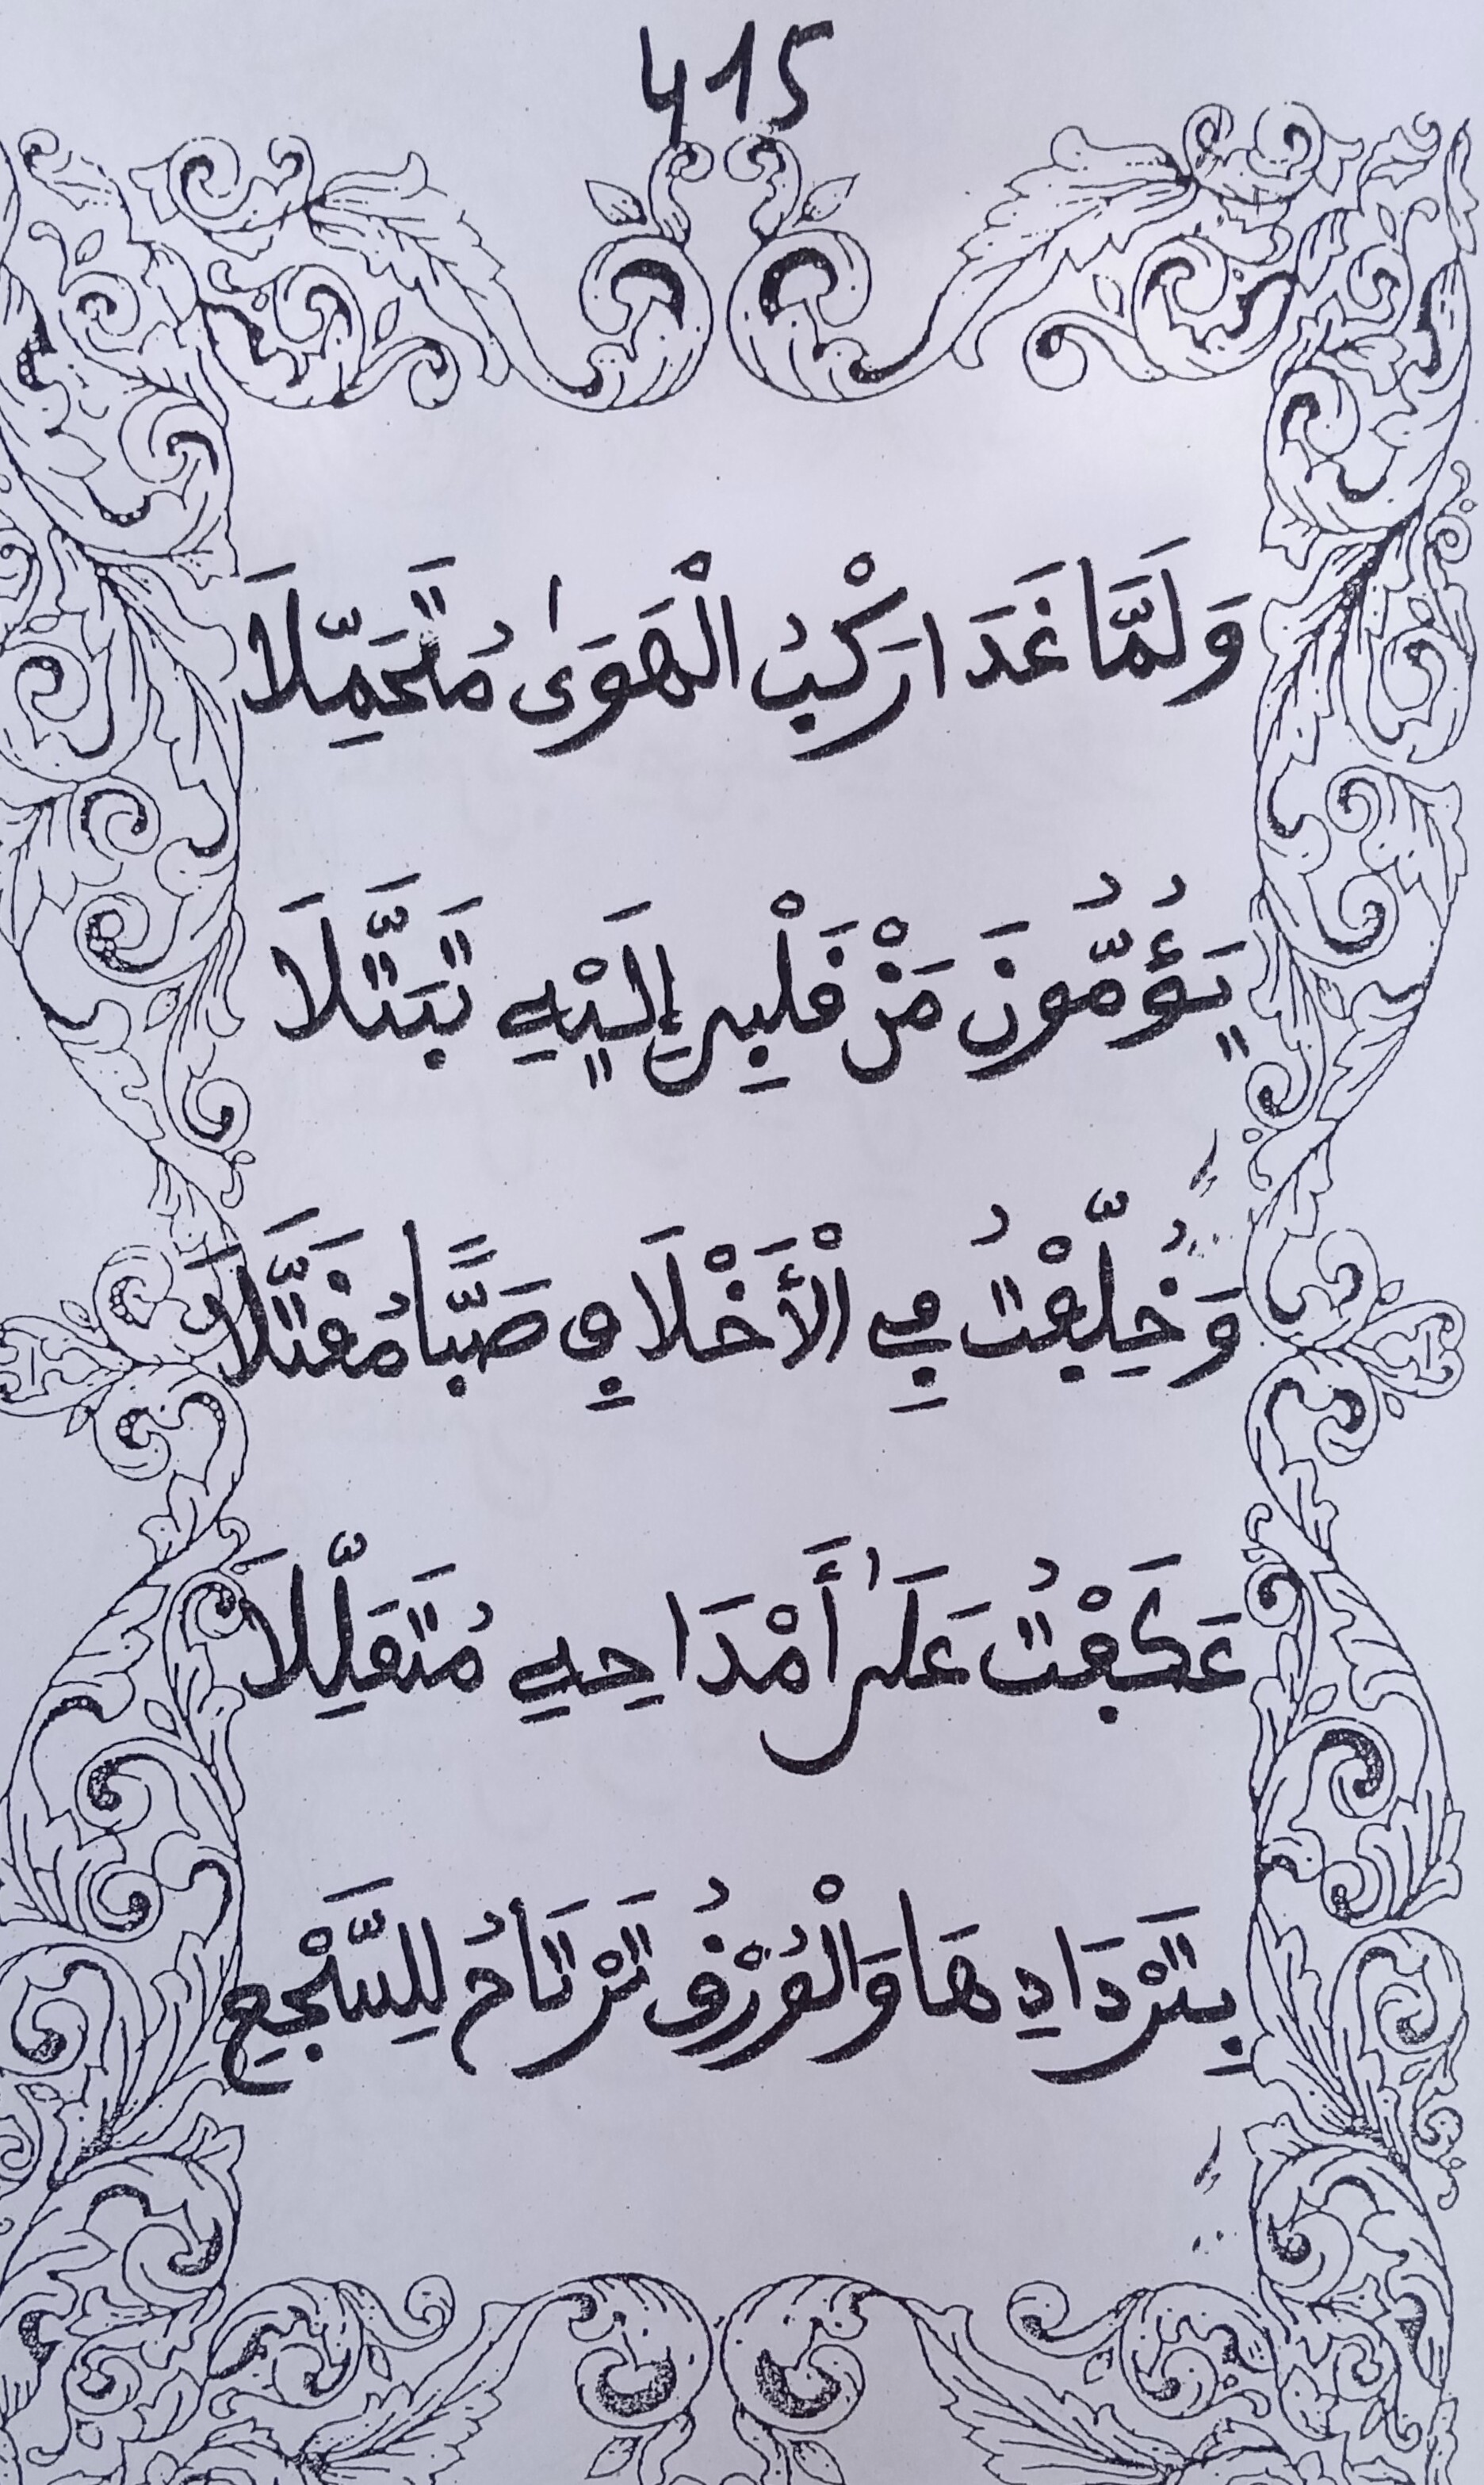 415
وَلَمَّا غَدَا رَكْبُ الْهَوَىٰ مُتَحَمِّلَا
يَؤُمُّونَ مَنْ قَلْبِي إِلَيْهِ تَبَتَّلَا
وَخُلِّفْتُ فِي الْأَخْلَافِ صَبًّا مُقَتَّلَا
عَكَفْتُ عَلَىٰ أَمْدَاحِهِ مُتَعَلِّلَا
بِتَرْدَادِهَا وَالْوُرْقُ تَرْتَاحُ لِلسَّجْعِ